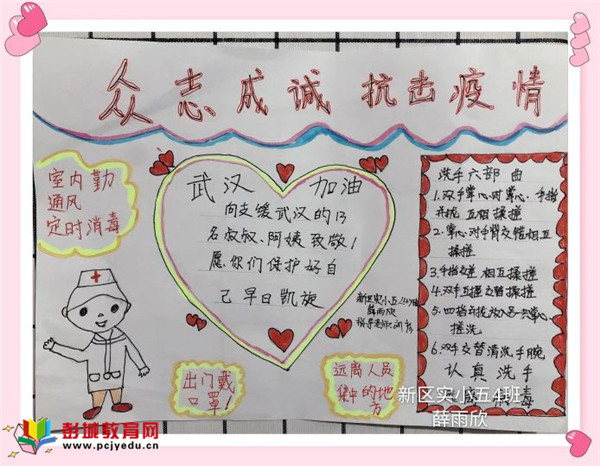 众志成诚 抗击疫情
室内勤
通风
定时消毒
武汉 加油
向支缓武汉的13
名叔叔、阿姨致敬!
愿你们保护好自
己早日凯旋
新区实小五(4)班
薛雨欣
出门戴
口罩!
远离人员
集中的地
方
洗手六部曲
1.双手掌心对掌心、手指
并拢互相揉搓
2.掌心对手背交错相互
揉搓
3.手指交差相互揉搓
4.双手互握交替揉搓
搓洗
6.双手交替清洗手腕
认真洗手
病毒
新区实小五4班
薛雨欣
彭城教育网
www.pcjyedu.cn